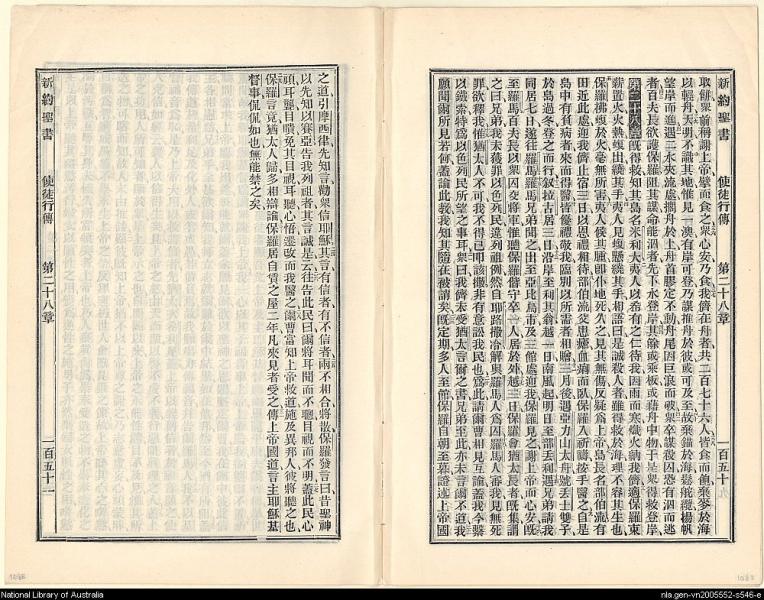 新約聖書 使徒行傳 第二十八章 一百五十
取餅眾前稱謝上帝擘而食之眾心安乃食我儕在舟者共二百七十六人皆食而飽棄麥於海
以輕舟天明不識其地惟見一澳有岸可登乃謀推舟於彼或可及至故棄錨於海鬆舵纜揚帆
望岸而進遇二水夾流處擱舟於上舟首膠定不動舟尾因巨浪而破眾卒謀殺囚恐有泅而逃
者百夫長欲護保羅阻其謀命能泅者先下水登岸其餘或乘板或藉舟中物于是眾得救登岸
第二十八章 既得救知其島名米利大夷人以希有之仁待我因雨而寒爇火納我儕適保羅束
薪置火火熱蝮出繞其手夷人見蝮懸繞其手相語曰是誠殺人者雖得救於海理不容其生也
保羅拂蝮於火毫無所害夷人俟其腫卽仆地死久之見其無傷反疑爲上帝島長名部伯流有
田近此處迎我儕止宿三日以恩禮相待部伯流父患瘧血痢而臥保羅入祈禱按手醫之自是
島中有負病者來而得醫皆優禮敬我臨別以所需者相贈三月後遇亞力山太舟號丟士雙子
於島過冬登之而行敘拉古居三日沿岸至利其翁越一日南風起明日至部丟利遇兄弟請我
同居七日遂往羅馬羅馬兄弟聞之出至亞比烏市及三館處迎我保羅見之謝上帝而心安既
至羅馬百夫長以眾囚交將軍惟聽保羅偕守卒一人居於外越三日保羅會猶太長者既集謂
之曰兄弟我未獲罪以色列民違列祖例然自耶路撒冷解與羅馬人爲囚羅馬人審我見無死
罪欲釋我惟猶太人不可我不得已叩該撒非有意訟我民也爲此請爾曹相見互論蓋我今繫
以鐵索特爲以色列民所望之事耳眾曰我儕未受猶太言爾之書兄弟至此亦未言爾不道我
願聞爾所見若何蓋論此教我知其隨在被誚矣既定期多人至館保羅自朝至暮證述上帝國
之道引摩西律先知言勸眾信耶穌其言有信者有不信者兩不相合將散保羅發言曰昔聖神
以先知以賽亞告我列祖者其言誠是云往告此民曰爾將耳聞而不聽目視而不明蓋此民心
頑耳聾目瞶免其目視耳聽心悟遷改而我醫之爾曹當知上帝救道施及異邦人彼將聽之也
保羅言竟猶太人歸多相辯論保羅居自賃之屋二年凡來見者受之傳上帝國道言主耶穌基
督事侃侃如也無能禁之矣
新約聖書 使徒行傳 第二十八章 一百五十一
National Library of Australia
nla.gen-vn2005552-s546-e